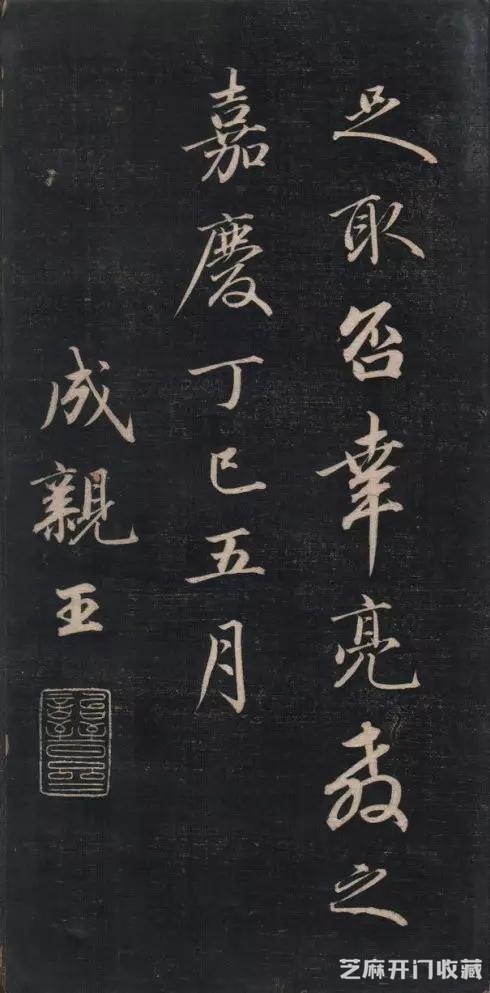 足取否幸亮教之
嘉慶丁巳五月
成親王
芝麻开门收藏